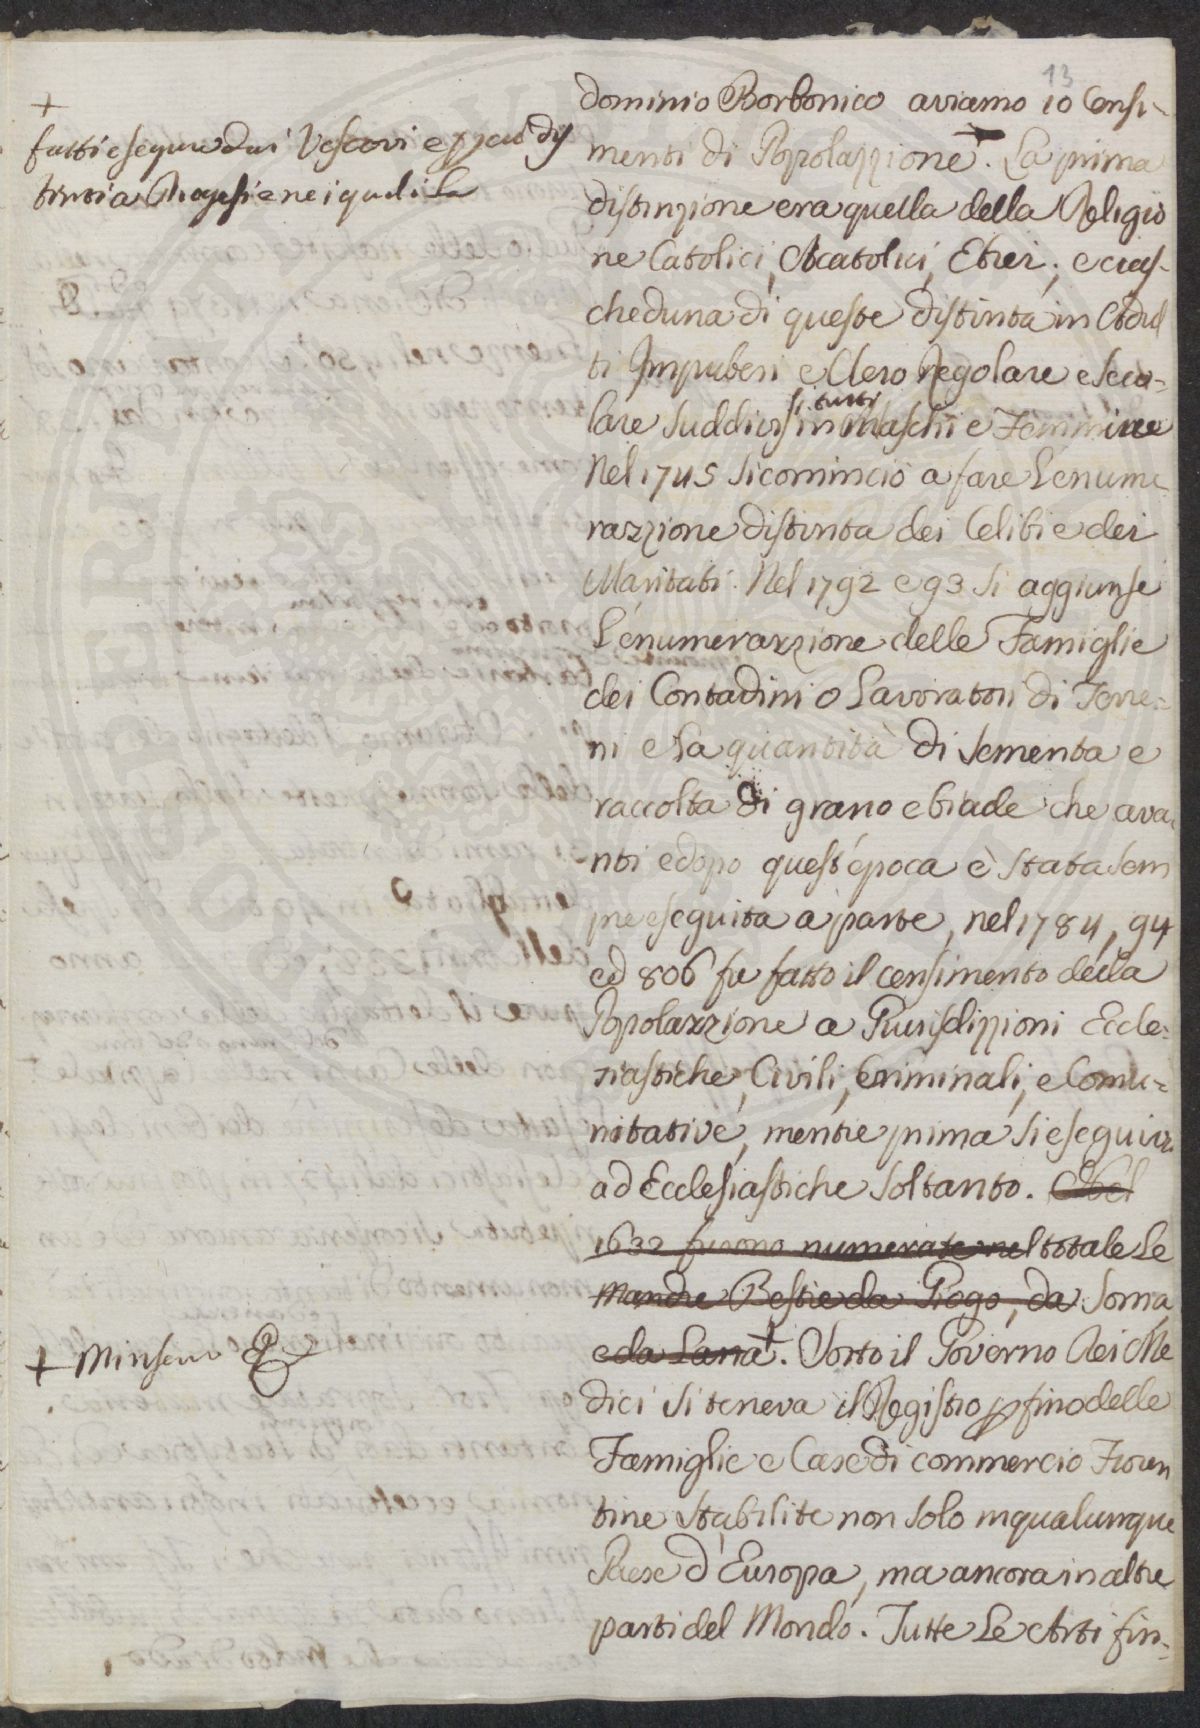 13
+
fatti eseguire dai Vescovi e p̱ciò dis
tinti a Diogesi e nei quali la
dominio Borbonico aviamo 10 Censi-
menti di Popolazzione +. La prima
distinzione era quella della Religio
ne Catolici, Acatolici, Ebrei; e cias-
cheduna di queste distinta in Adul
ti Impuberi e Clero Regolare e Seco-
lare Suddivisi tutti in Maschi e Femmine
Nel 1745 si comincio a fare L'enume
razzione distinta dei Celibi e dei
Maritati. Nel 1792 e 93 si aggiunse
L'enumerazzione delle Famiglie
dei Contadini o Lavoratori di Terre-
ni e La quantità di sementa e
raccolta di grano e biade che avan
nti e dopo quest'epoca è stata sem
pre eseguita a parte, nel 1784, 94
ed 806 fu fatto il censimento della
Popolazzione a Giurisdizzioni Eccle-
siastiche, Civili, Criminali, e Comu-
nitative, mentre prima si eseguiva
ad Ecclesiastiche soltanto. Nel
1632 furono numerate nel totale Le
Mandre Bestie da Giogo, da Soma,
e da Lana +. Sotto il Governo dei Me
dici si teneva il Registro p̱ fino delle
Famiglie e Case di commercio Fioren
tine stabilite non solo in qualunque
Paese d'Europa, ma ancora in altre
parti del Mondo. Tutte Le Arti fin-
+ Minseno